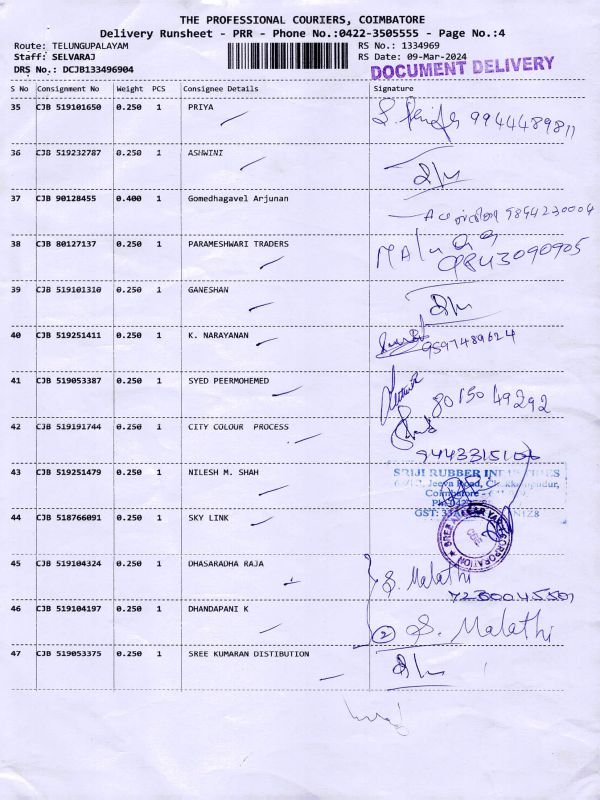 THE PROFESSIONAL COURIERS, COIMBATORE
Delivery Runsheet - PRR - Phone No.:0422-3505555 - Page No.:4
Route: TELUNGUPALAYAM RS No.: 1334969
Staff: SELVARAJ RS Date: 09-Mar-2024
DRS No.: DCJB133496904 DOCUMENT DELIVERY
S No Consignment No Weight PCS Consignee Details Signature
35 CJB 519101650 0.250 1 PRIYA 9944489811
36 CJB 519232787 0.250 1 ASHWINI
37 CJB 90128455 0.400 1 Gomedhagavel Arjunan 9894230004
38 CJB 80127137 0.250 1 PARAMESHWARI TRADERS 9843090905
39 CJB 519101310 0.250 1 GANESHAN
40 CJB 519251411 0.250 1 K. NARAYANAN 9597489624
41 CJB 519053387 0.250 1 SYED PEERMOHEMED 8015049292
42 CJB 519191744 0.250 1 CITY COLOUR PROCESS
43 CJB 519251479 0.250 1 NILESH M. SHAH
SRIJI RUBBER INDUSTRIES
Jeeva Road,
Coimbatore
44 CJB 518766091 0.250 1 SKY LINK
GST:
45 CJB 519104324 0.250 1 DHASARADHA RAJA S. Malathi
46 CJB 519104197 0.250 1 DHANDAPANI K 2 S. Malathi
47 CJB 519053375 0.250 1 SREE KUMARAN DISTIBUTION